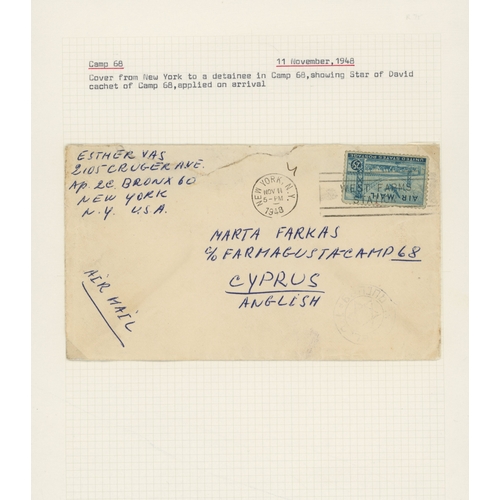 Camp 68
11 November,1948
Cover from New York to a detainee in Camp 68,showing Star of David
cachet of Camp 68,applied on arrival
ESTHER VAS
2105 CRUGER AVE.
AP. 2C. BRONX 60
NEW YORK
N.Y. U.S.A.
NEW YORK, N.Y.
NOV 11
5-PM
1948
WEST FARMS
STA.
AIR MAIL
MARTA FARKAS
c/o FARMAGUSTA-CAMP 68
CYPRUS
ANGLISH
AIR MAIL